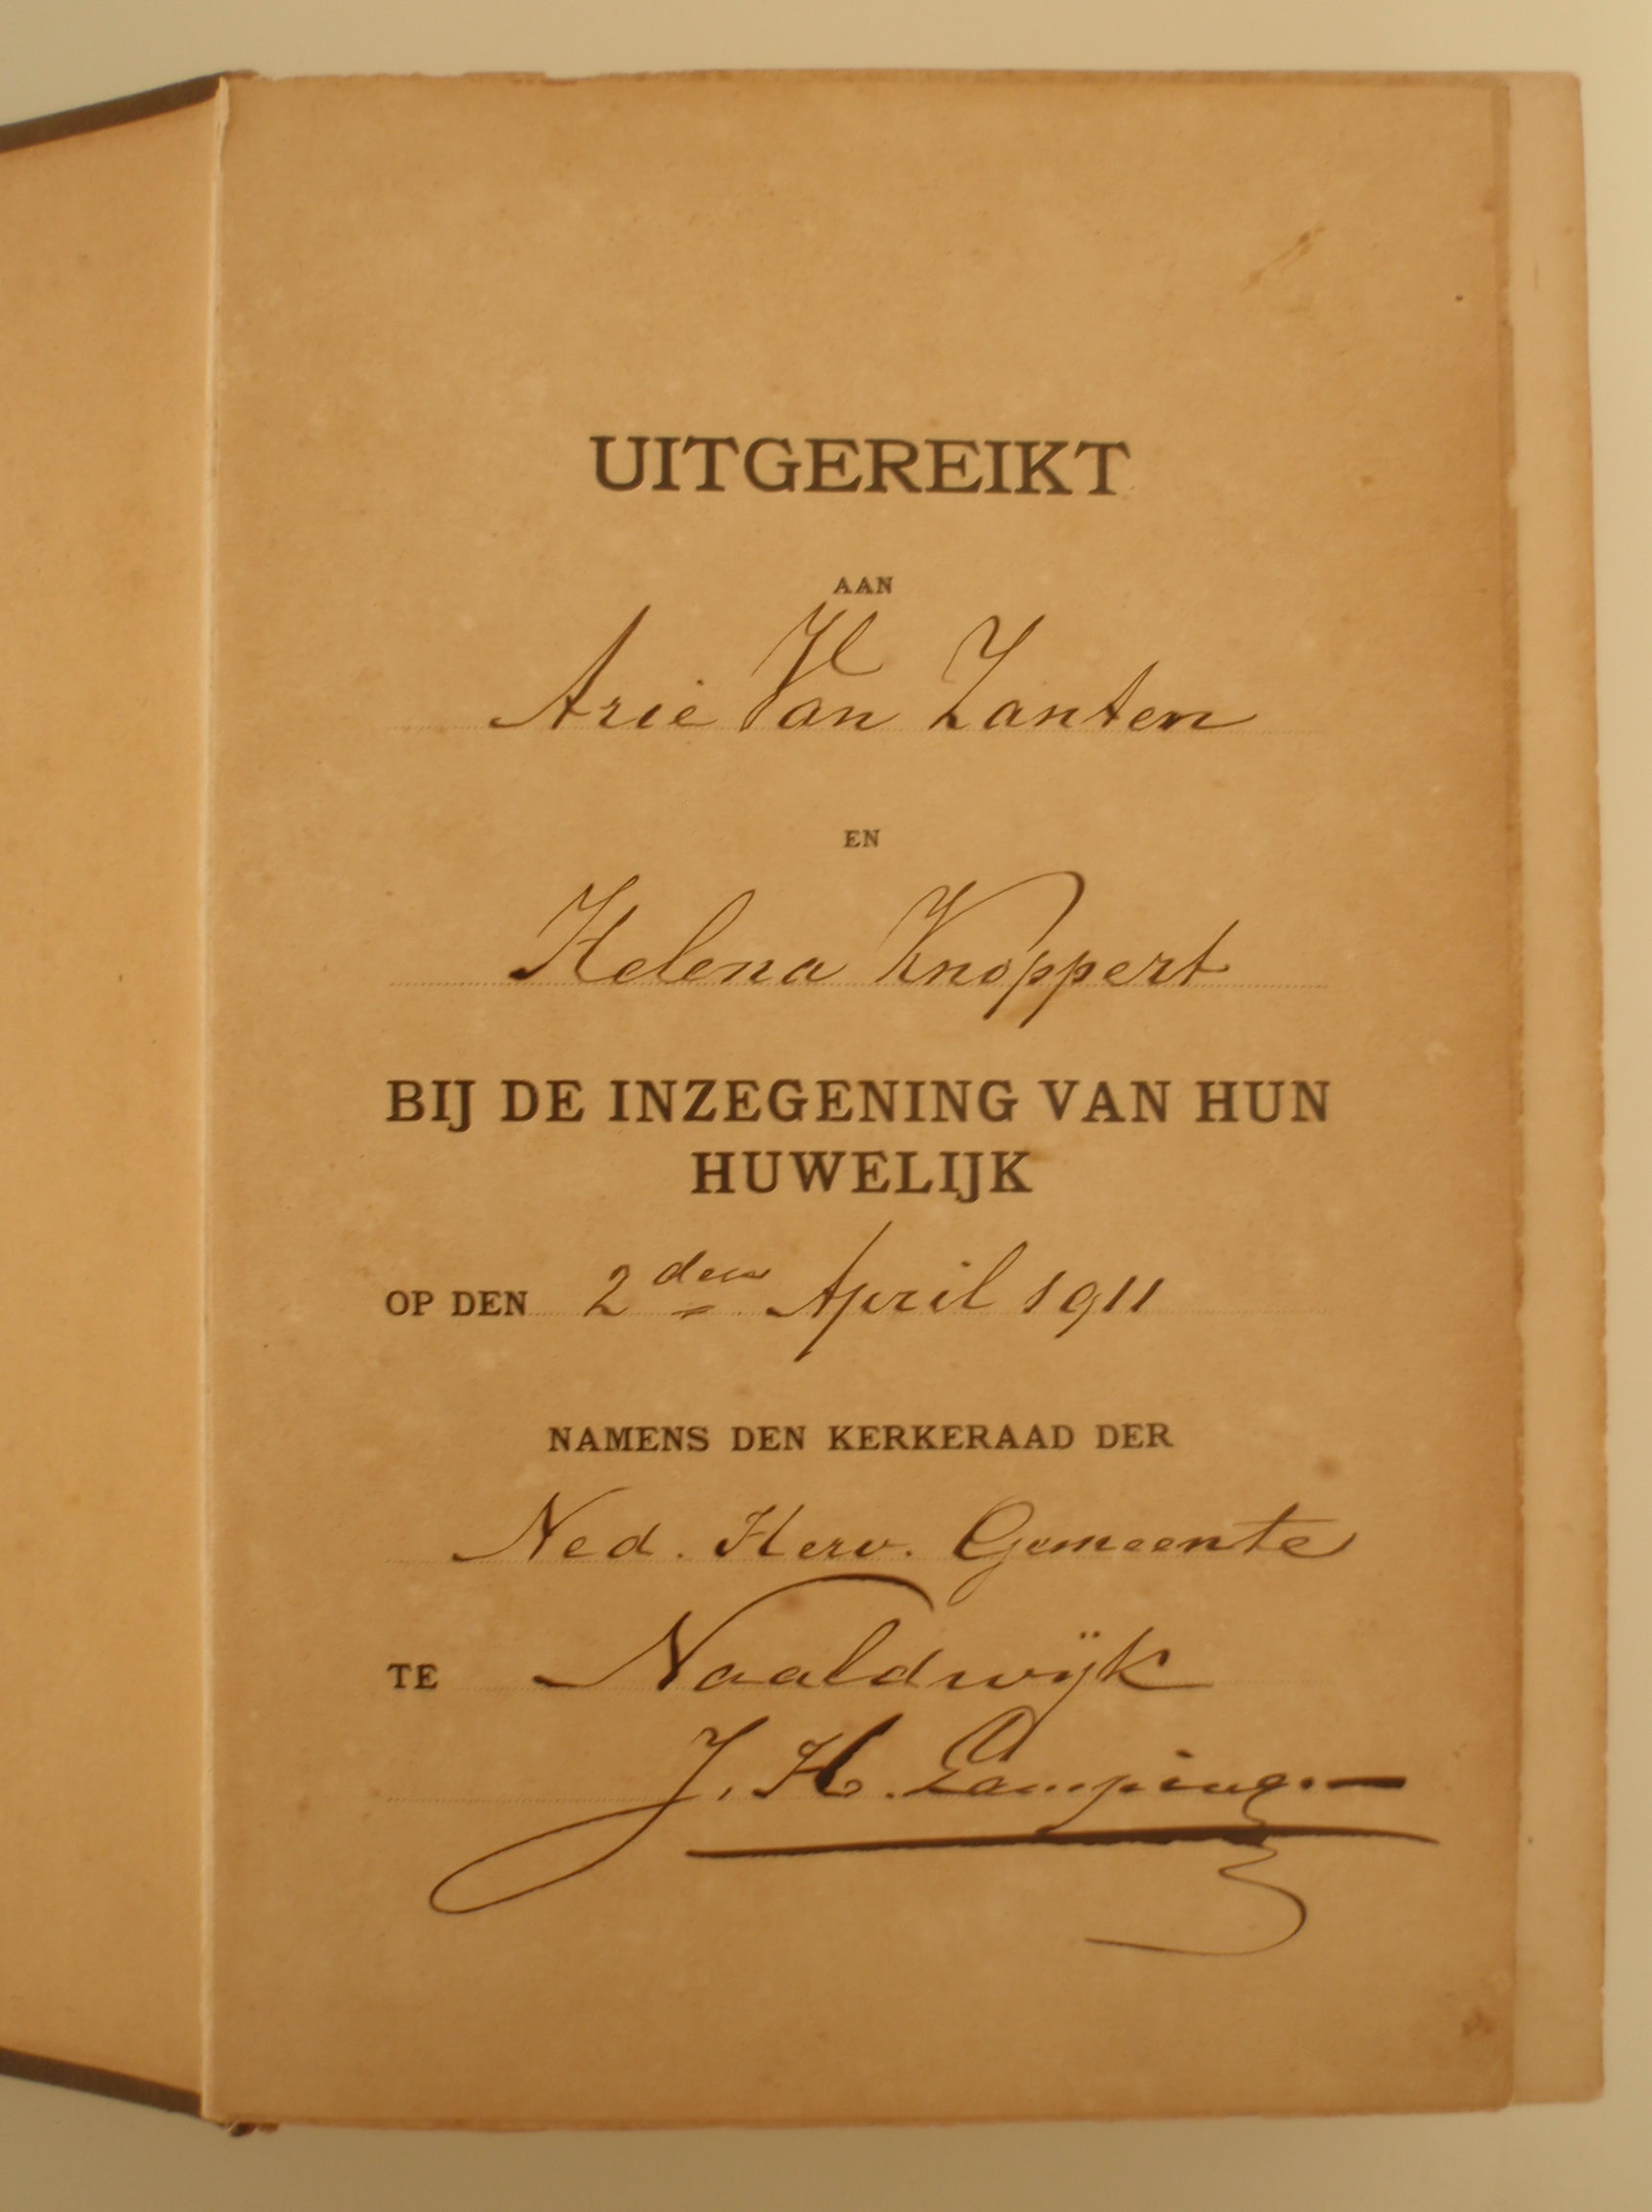 UITGEREIKT
AAN
Arie Van Zanten
EN
Helena Knoppert
BIJ DE INZEGENING VAN HUN
HUWELIJK
OP DEN 2den April 1911
NAMENS DEN KERKERAAD DER
Ned. Herv. Gemeente
TE Naaldwijk
J. H.